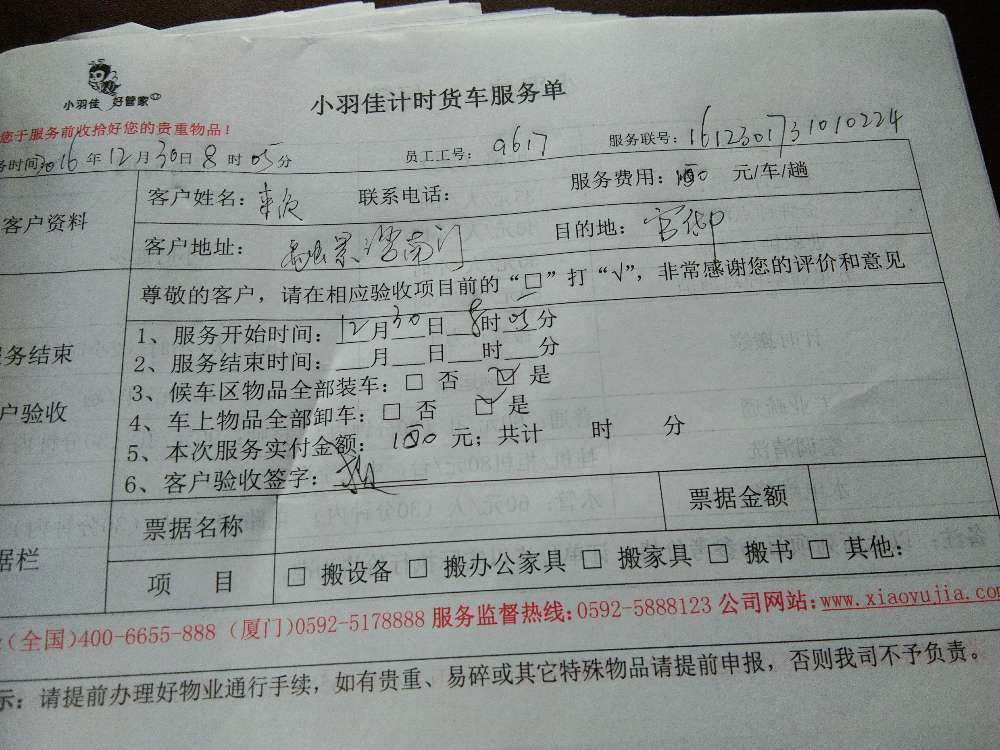 小羽佳 好管家
小羽佳计时货车服务单
您于服务前收拾好您的贵重物品!
务时间:2016年12月30日8时05分 员工工号: 9617 服务联号: 1612301731010224
客户资料
客户姓名: 联系电话: 服务费用: 元/车/趟
客户地址: 南门 目的地: 官御
尊敬的客户，请在相应验收项目前的“□”打“√”，非常感谢您的评价和意见
务结束
户验收
1、服务开始时间: 12月30日 8时05分
2、服务结束时间: 月 日 时 分
3、候车区物品全部装车: □ 否 ☑ 是
4、车上物品全部卸车: □ 否 ☑ 是
5、本次服务实付金额: 元; 共计 时 分
6、客户验收签字:
据栏
票据名称 票据金额
项 目 □ 搬设备 □ 搬办公家具 □ 搬家具 □ 搬书 □ 其他:
(全国)400-6655-888 (厦门)0592-5178888 服务监督热线:0592-5888123 公司网站:www.xiaoyujia.com
示: 请提前办理好物业通行手续，如有贵重、易碎或其它特殊物品请提前申报，否则我司不予负责。